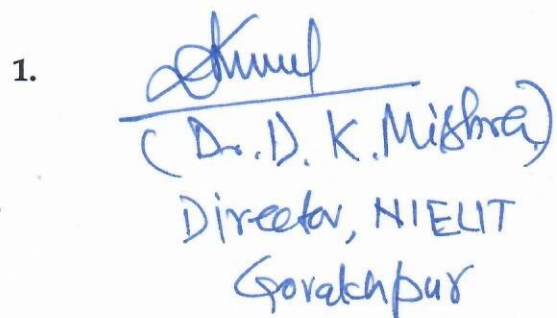 1.
(Dr. D. K. Mishra)
Director, NIELIT
Gorakhpur